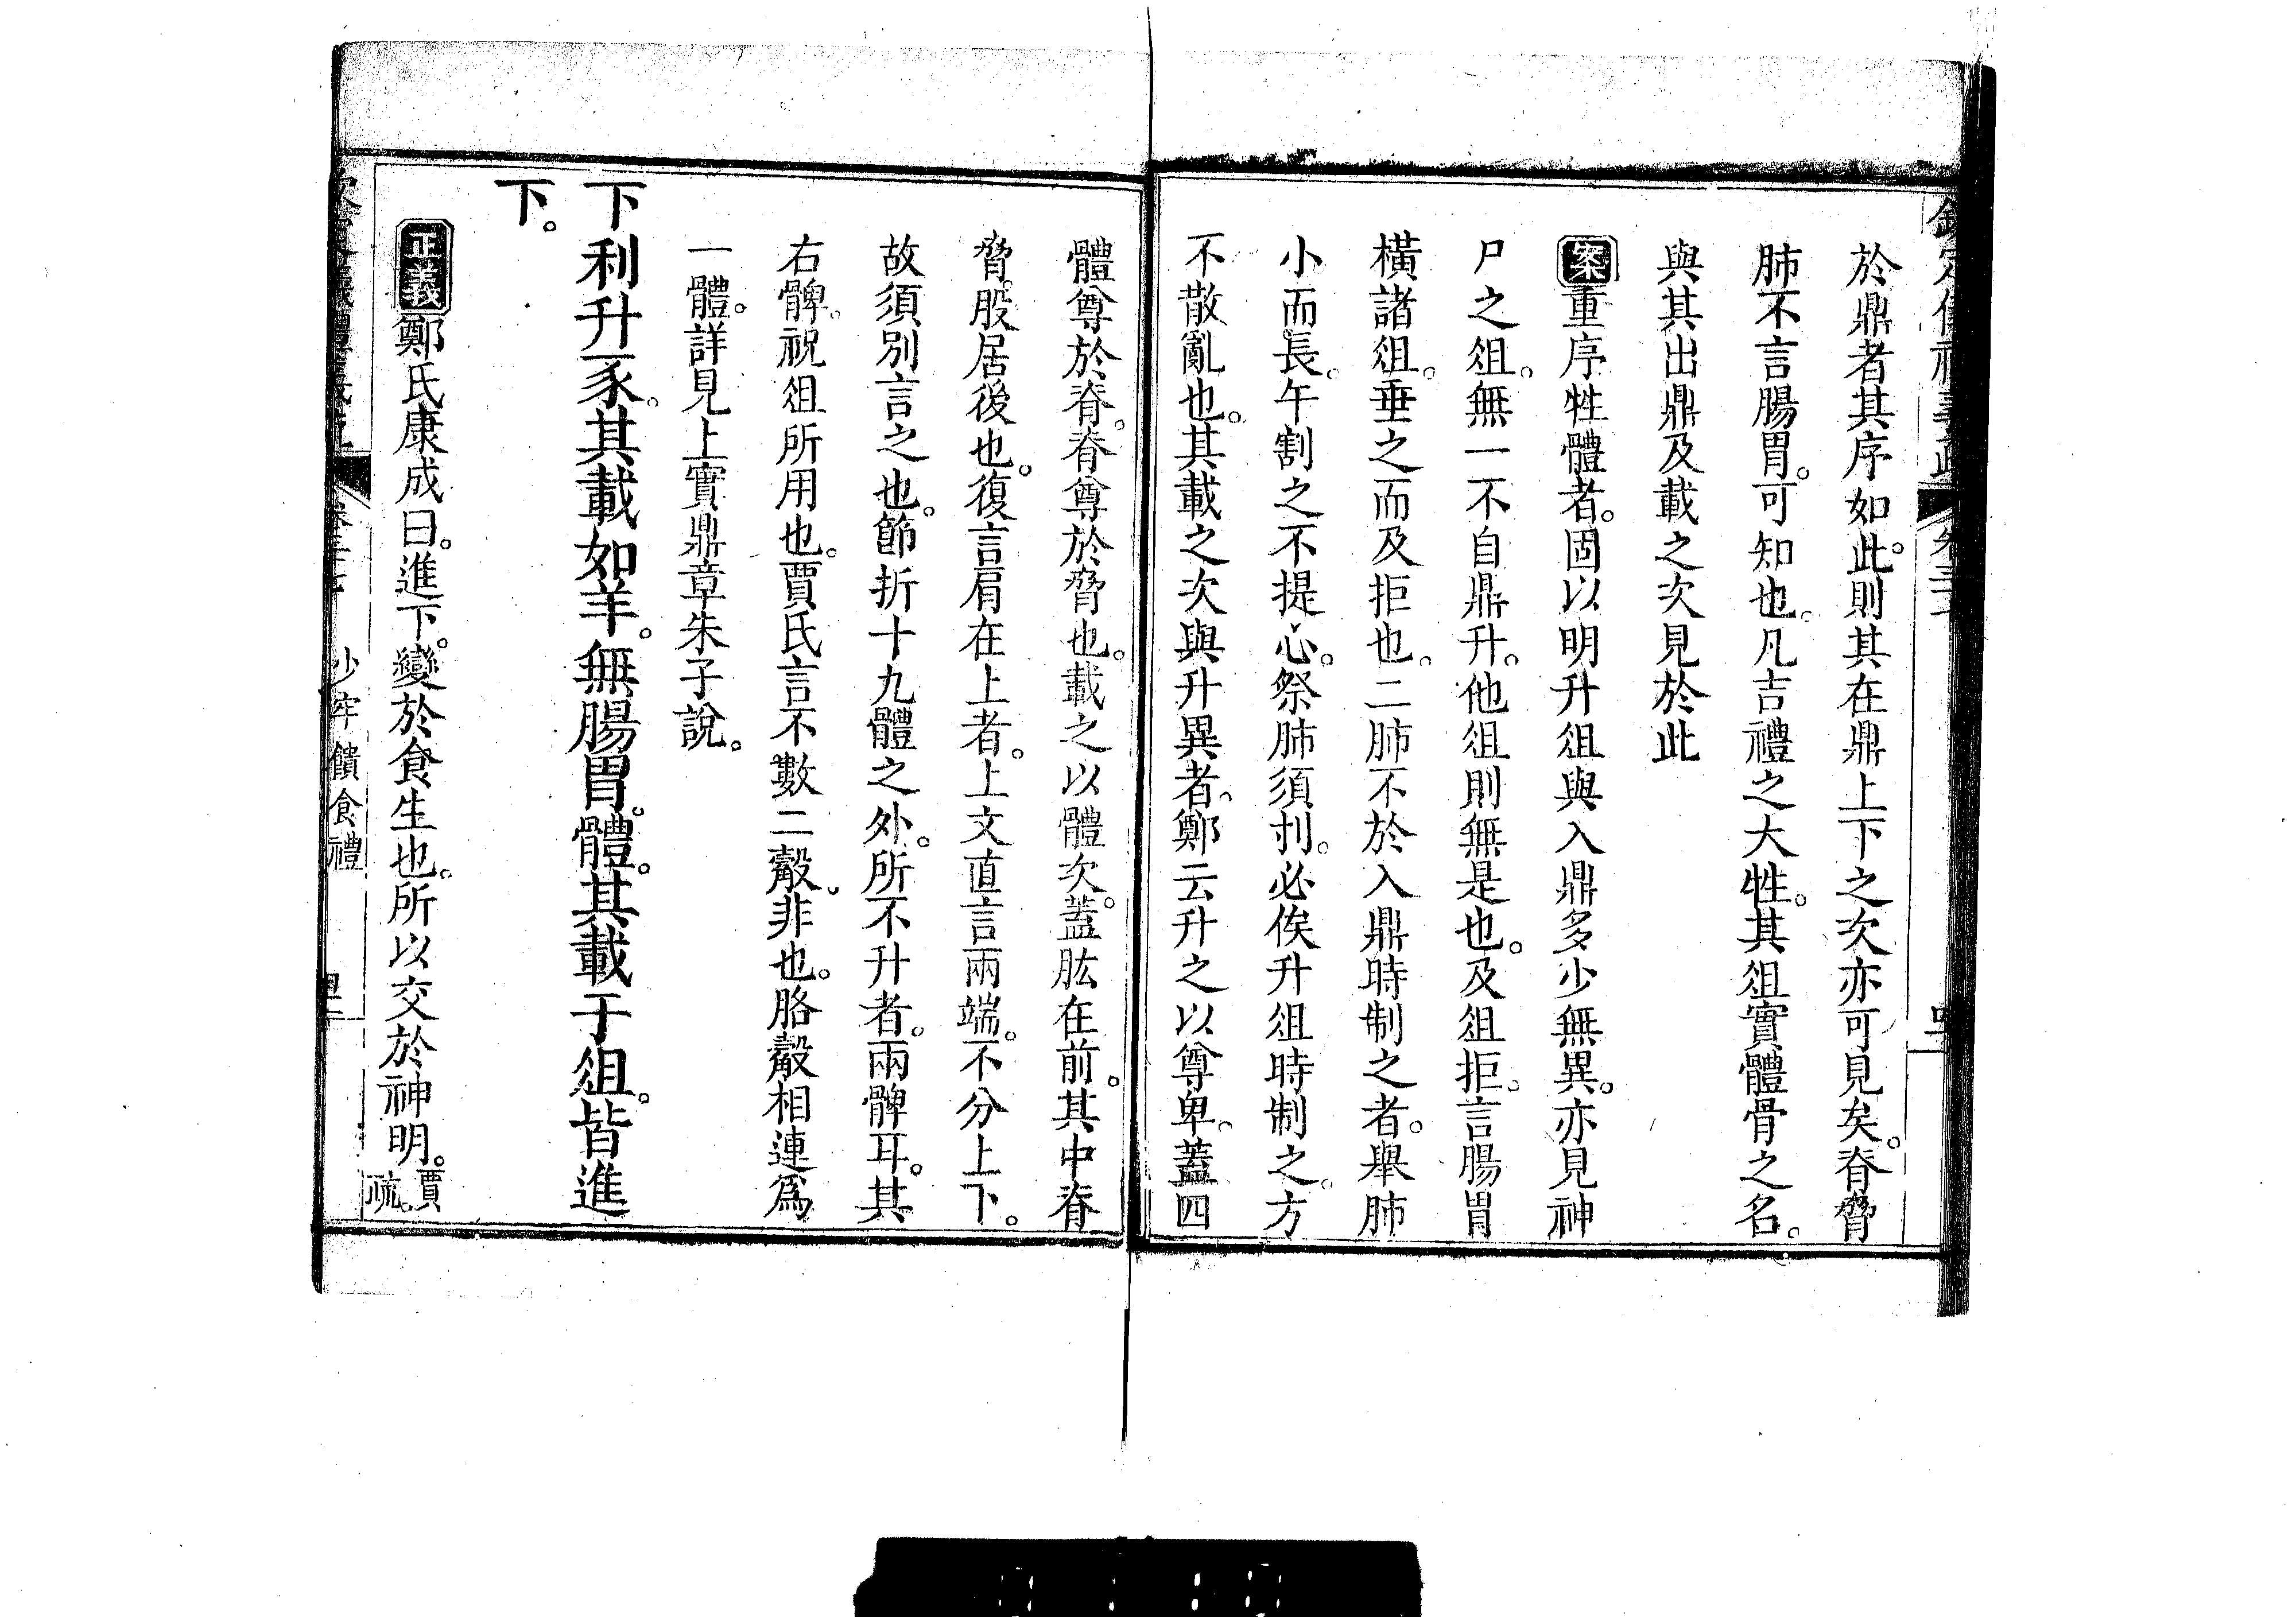 於鼎者其序如此。則其在鼎上下之次亦可見矣。脊脅
肺不言腸胃。可知也。凡吉禮之大牲。其俎實體骨之名。
與其出鼎及載之次見於此
案重序牲體者。固以明升俎與入鼎多少無異。亦見神
尸之俎。無一不自鼎升。他俎則無是也。及俎拒。言腸胃
橫諸俎。垂之而及拒也。二肺不於入鼎時制之者。舉肺
小而長。午割之不提心。祭肺須刌。必俟升俎時制之。方
不散亂也。其載之次與升異者。鄭云升之以尊卑。蓋四
體尊於脊。脊尊於脅也。載之以體次。蓋肱在前。其中脊
脅。股居後也。復言肩在上者。上文直言兩端。不分上下。
故須別言之也。節折十九體之外。所不升者。兩髀耳。其
右髀。祝俎所用也。賈氏言不數二觳。非也。胳觳相連爲
一體。詳見上實鼎章朱子說。
下利升豕。其載如羊。無腸胃。體。其載于俎。皆進
下。
正義鄭氏康成曰。進下。變於食生也。所以交於神明。賈疏。
少牢饋食禮